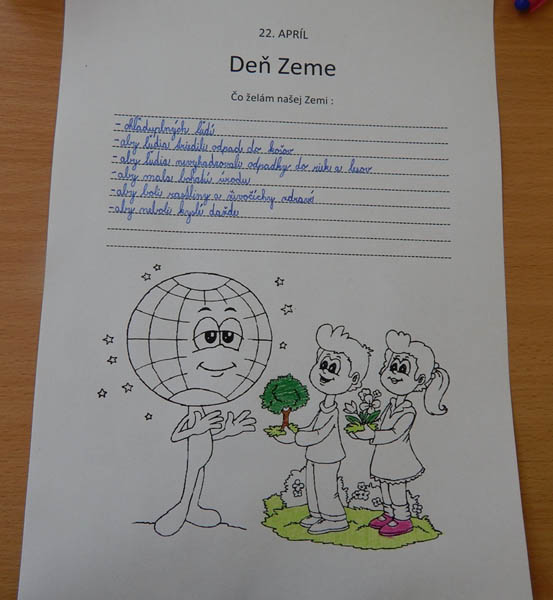 22. APRÍL
Deň Zeme
Čo želám našej Zemi :
- ohľaduplných ľudí
- aby ľudia triedili odpad do košov
- aby ľudia nevyhadzovali odpadky do riek a lesov
- aby mala bohatú úrodu
- aby boli rastliny a živočíchy zdraví
- aby neboli kyslé dažde